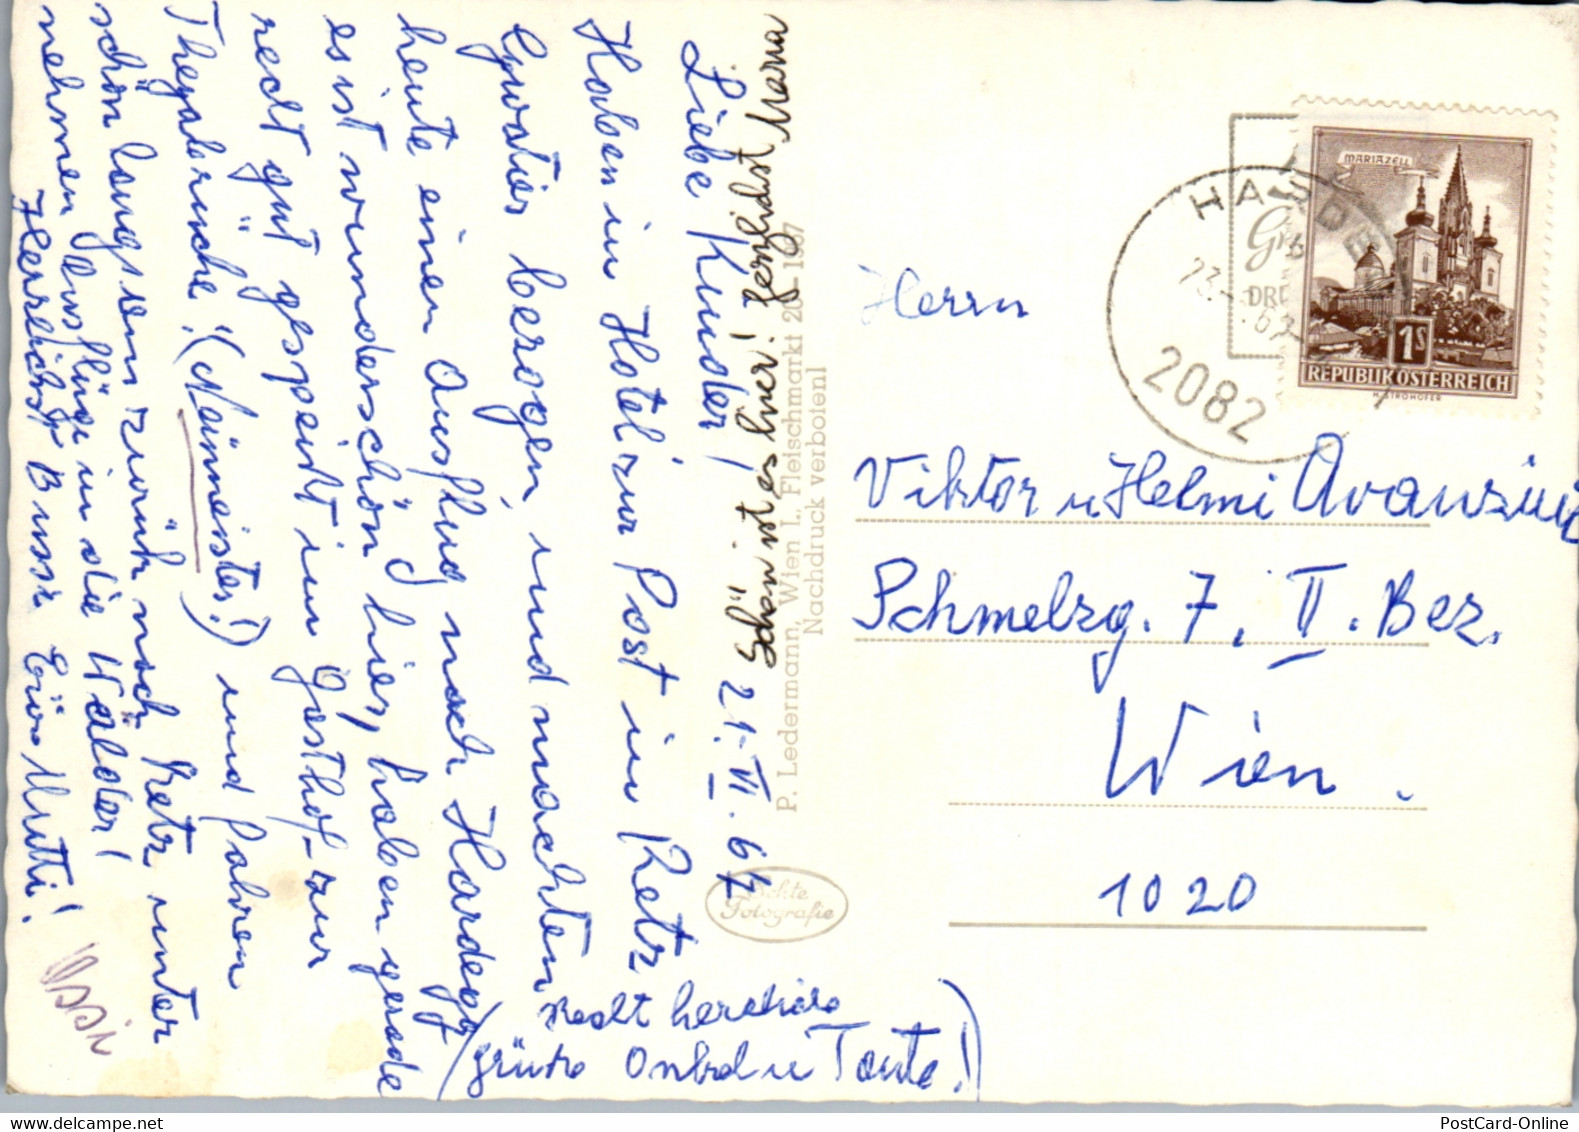 21. VI. 67
Liebe Kinder!
Haben im Hotel zur Post in Retz
Quatier bezogen, und machten
heute einen Ausflug nach Hardegg
es ist wunderschön hier, haben gerade
recht gut gespeist im Gasthof-zur
(Neümeister!) und fahren
schön langsam zurück nach Retz unter
nehmen Ausflüge in die Wälder!
Herzlichst Bussi Eüre Mutti!
Ossi
Schön ist es hier!
(Grüsze Onkel u Tante!)
P. Ledermann, Wien I., Fleischmarkt 20 - 1967
Nachdruck verboten!
Echte
Fotografie
HARDEGG
2082
MARIAZELL
1S
REPUBLIK ÖSTERREICH
H. STROHOFER
Herrn
Viktor u Helmi
Schmelzg. 7. II. Bez.
Wien.
1020
PostCard-Online.com
PostCard-Online